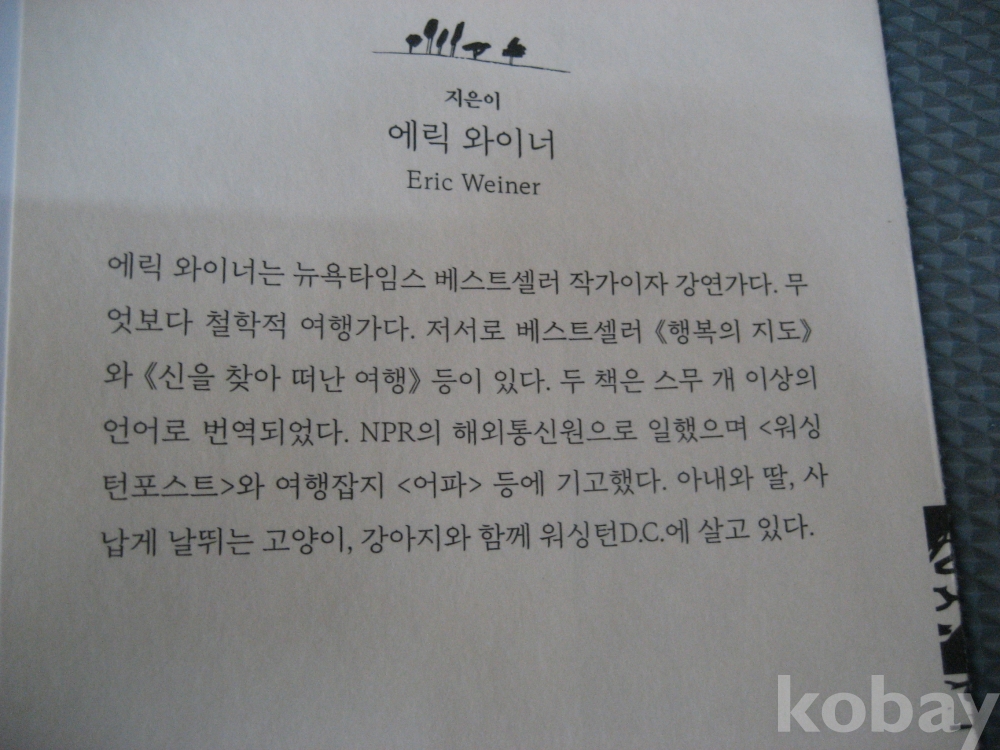 지은이
에릭 와이너
Eric Weiner
에릭 와이너는 뉴욕타임스 베스트셀러 작가이자 강연가다. 무
엇보다 철학적 여행가다. 저서로 베스트셀러 《행복의 지도》
와 《신을 찾아 떠난 여행》 등이 있다. 두 책은 스무 개 이상의
언어로 번역되었다. NPR의 해외통신원으로 일했으며 <워싱
턴포스트>와 여행잡지 <어파> 등에 기고했다. 아내와 딸, 사
납게 날뛰는 고양이, 강아지와 함께 워싱턴D.C.에 살고 있다.
kobay